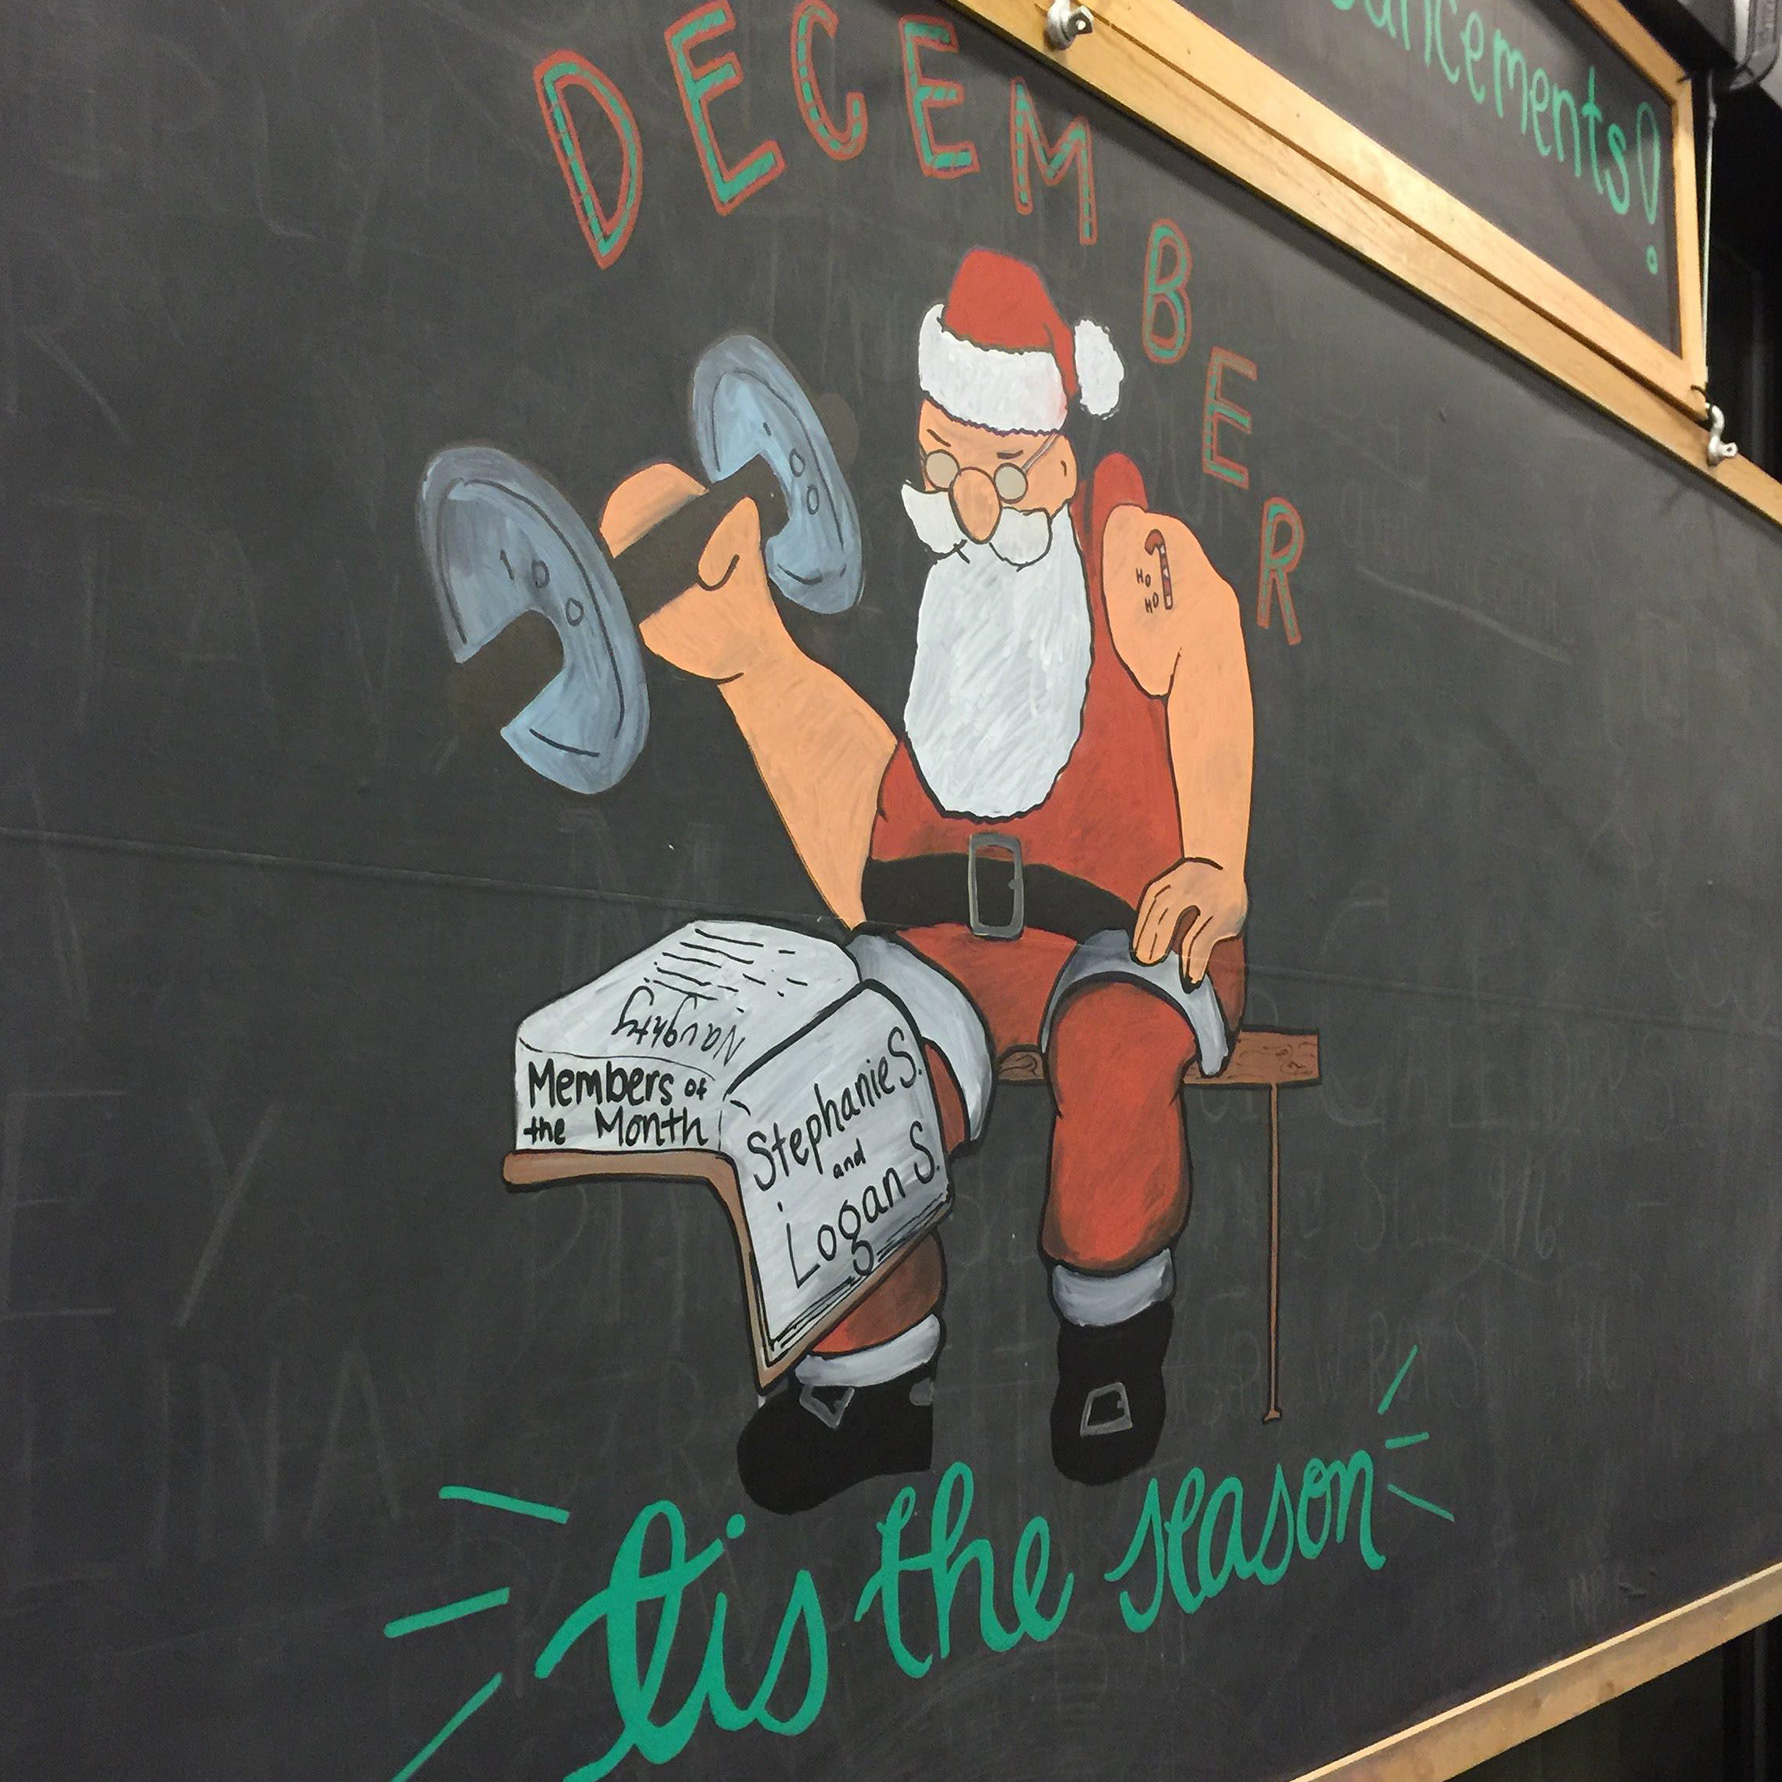 DECEMBER
HO
HO
100
Naughty
Members of
the Month
Stephanie S.
and
Logan S.
'tis the season